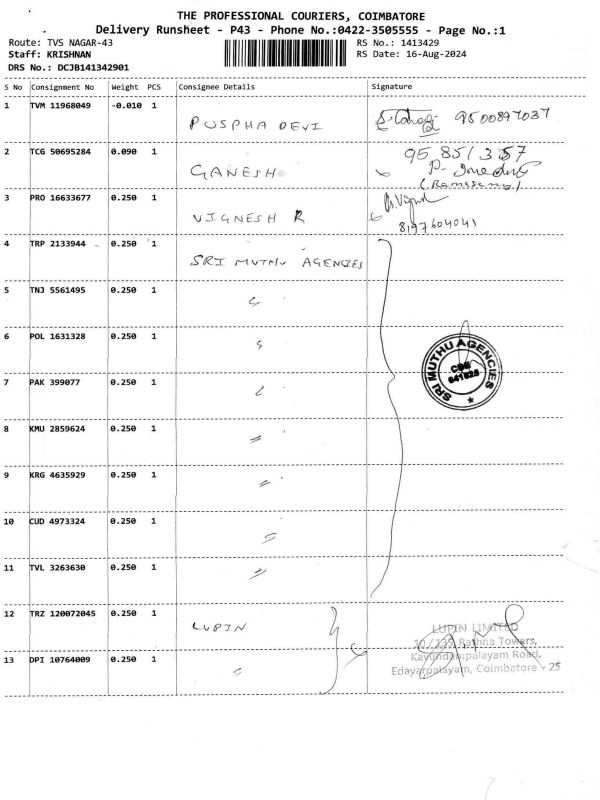 THE PROFESSIONAL COURIERS, COIMBATORE
Delivery Runsheet - P43 - Phone No.:0422-3505555 - Page No.:1
Route: TVS NAGAR-43
RS No.: 1413429
Staff: KRISHNAN
RS Date: 16-Aug-2024
DRS No.: DCJB141342901
S No Consignment No Weight PCS Consignee Details Signature
1 TVM 11968049 -0.010 1 PUSPHA DEVI 9500897037
2 TCG 50695284 0.090 1 GANESH 95 851357
3 PRO 16633677 0.250 1 VIGNESH R 8197604041
4 TRP 2133944 0.250 1 SRI MUTHU AGENCIES
5 TNJ 5561495 0.250 1 "
6 POL 1631328 0.250 1 "
7 PAK 399077 0.250 1 "
8 KMU 2859624 0.250 1 "
9 KRG 4635929 0.250 1 "
10 CUD 4973324 0.250 1 "
11 TVL 3263630 0.250 1 "
SRI MUTHU AGENCIES
CBE
641025
12 TRZ 120072045 0.250 1 LUPIN
13 DPI 10764009 0.250 1 "
LUPIN LIMITED
Rathna Towers,
Kavundampalayam Road,
Edayarpalayam, Coimbatore - 25